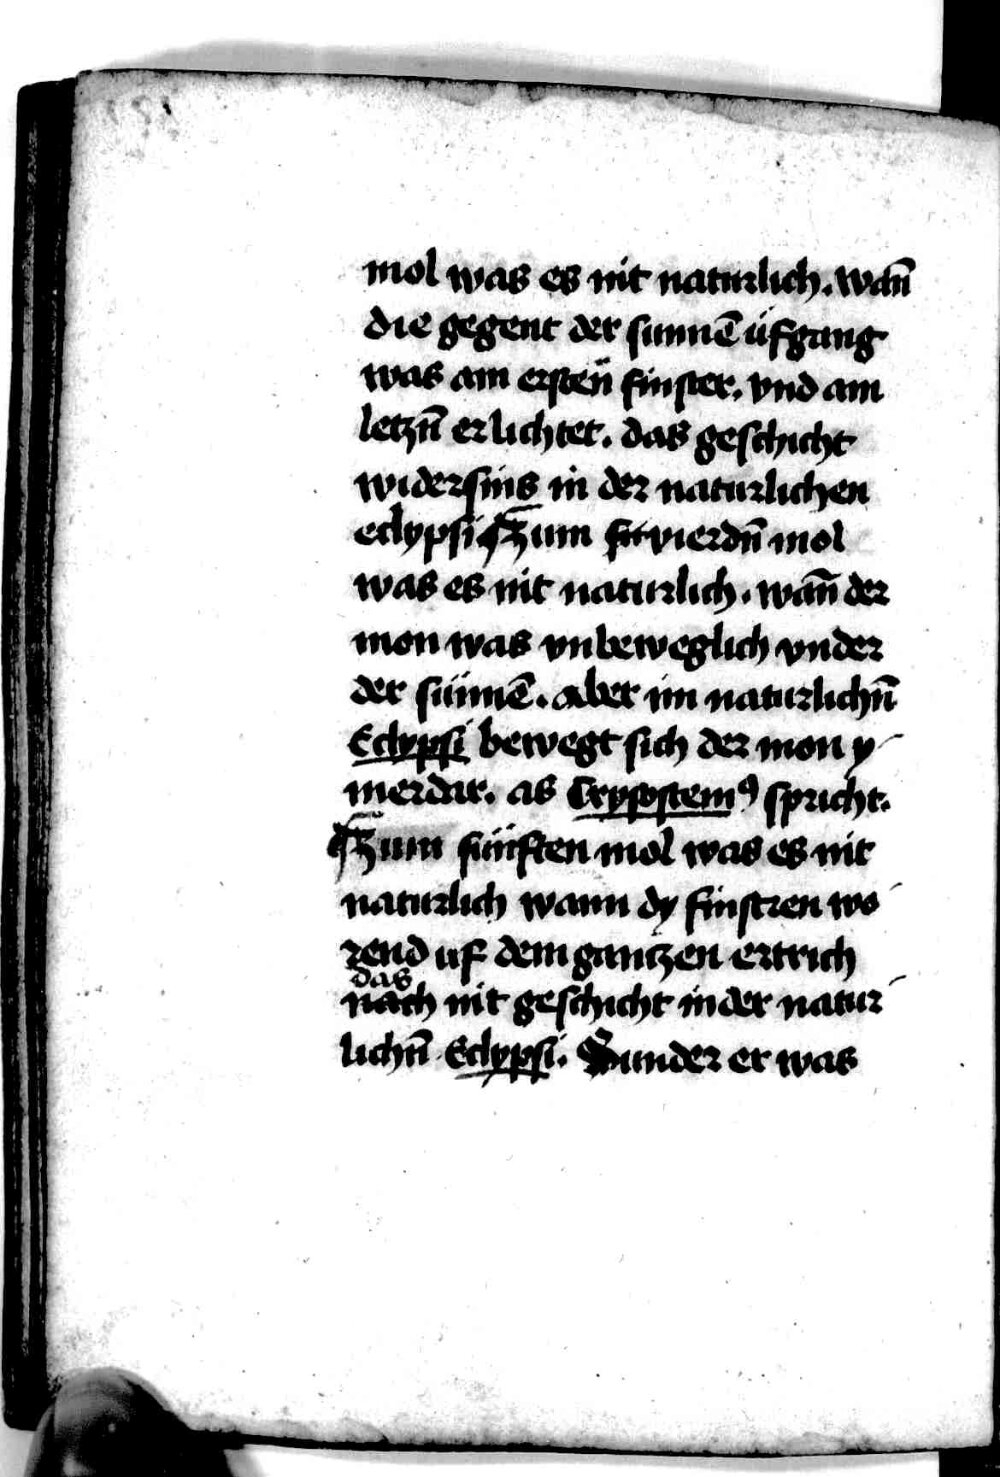 mol was es nit naturlich. wan̄
die gegent der sunnē ufgang
was am ersten finster. vnd am
letzn̄ erlichtet. das geschicht
widersins in der naturlichen
eclypsi Zum vierdn̄ mol
was es nit naturlich. wan̄ der
mon was vnbeweglich vnder
der sünnē. aber im naturlichn̄
Eclypsi bewegt sich der mon y
merdar. as spricht.
Zum fünften mol was es nit
naturlich wann dy finstren wo
rend uf dem gantzen ertrich
das
nach nit geschicht in der natur
lichn̄ Eclypsi. Sunder er was